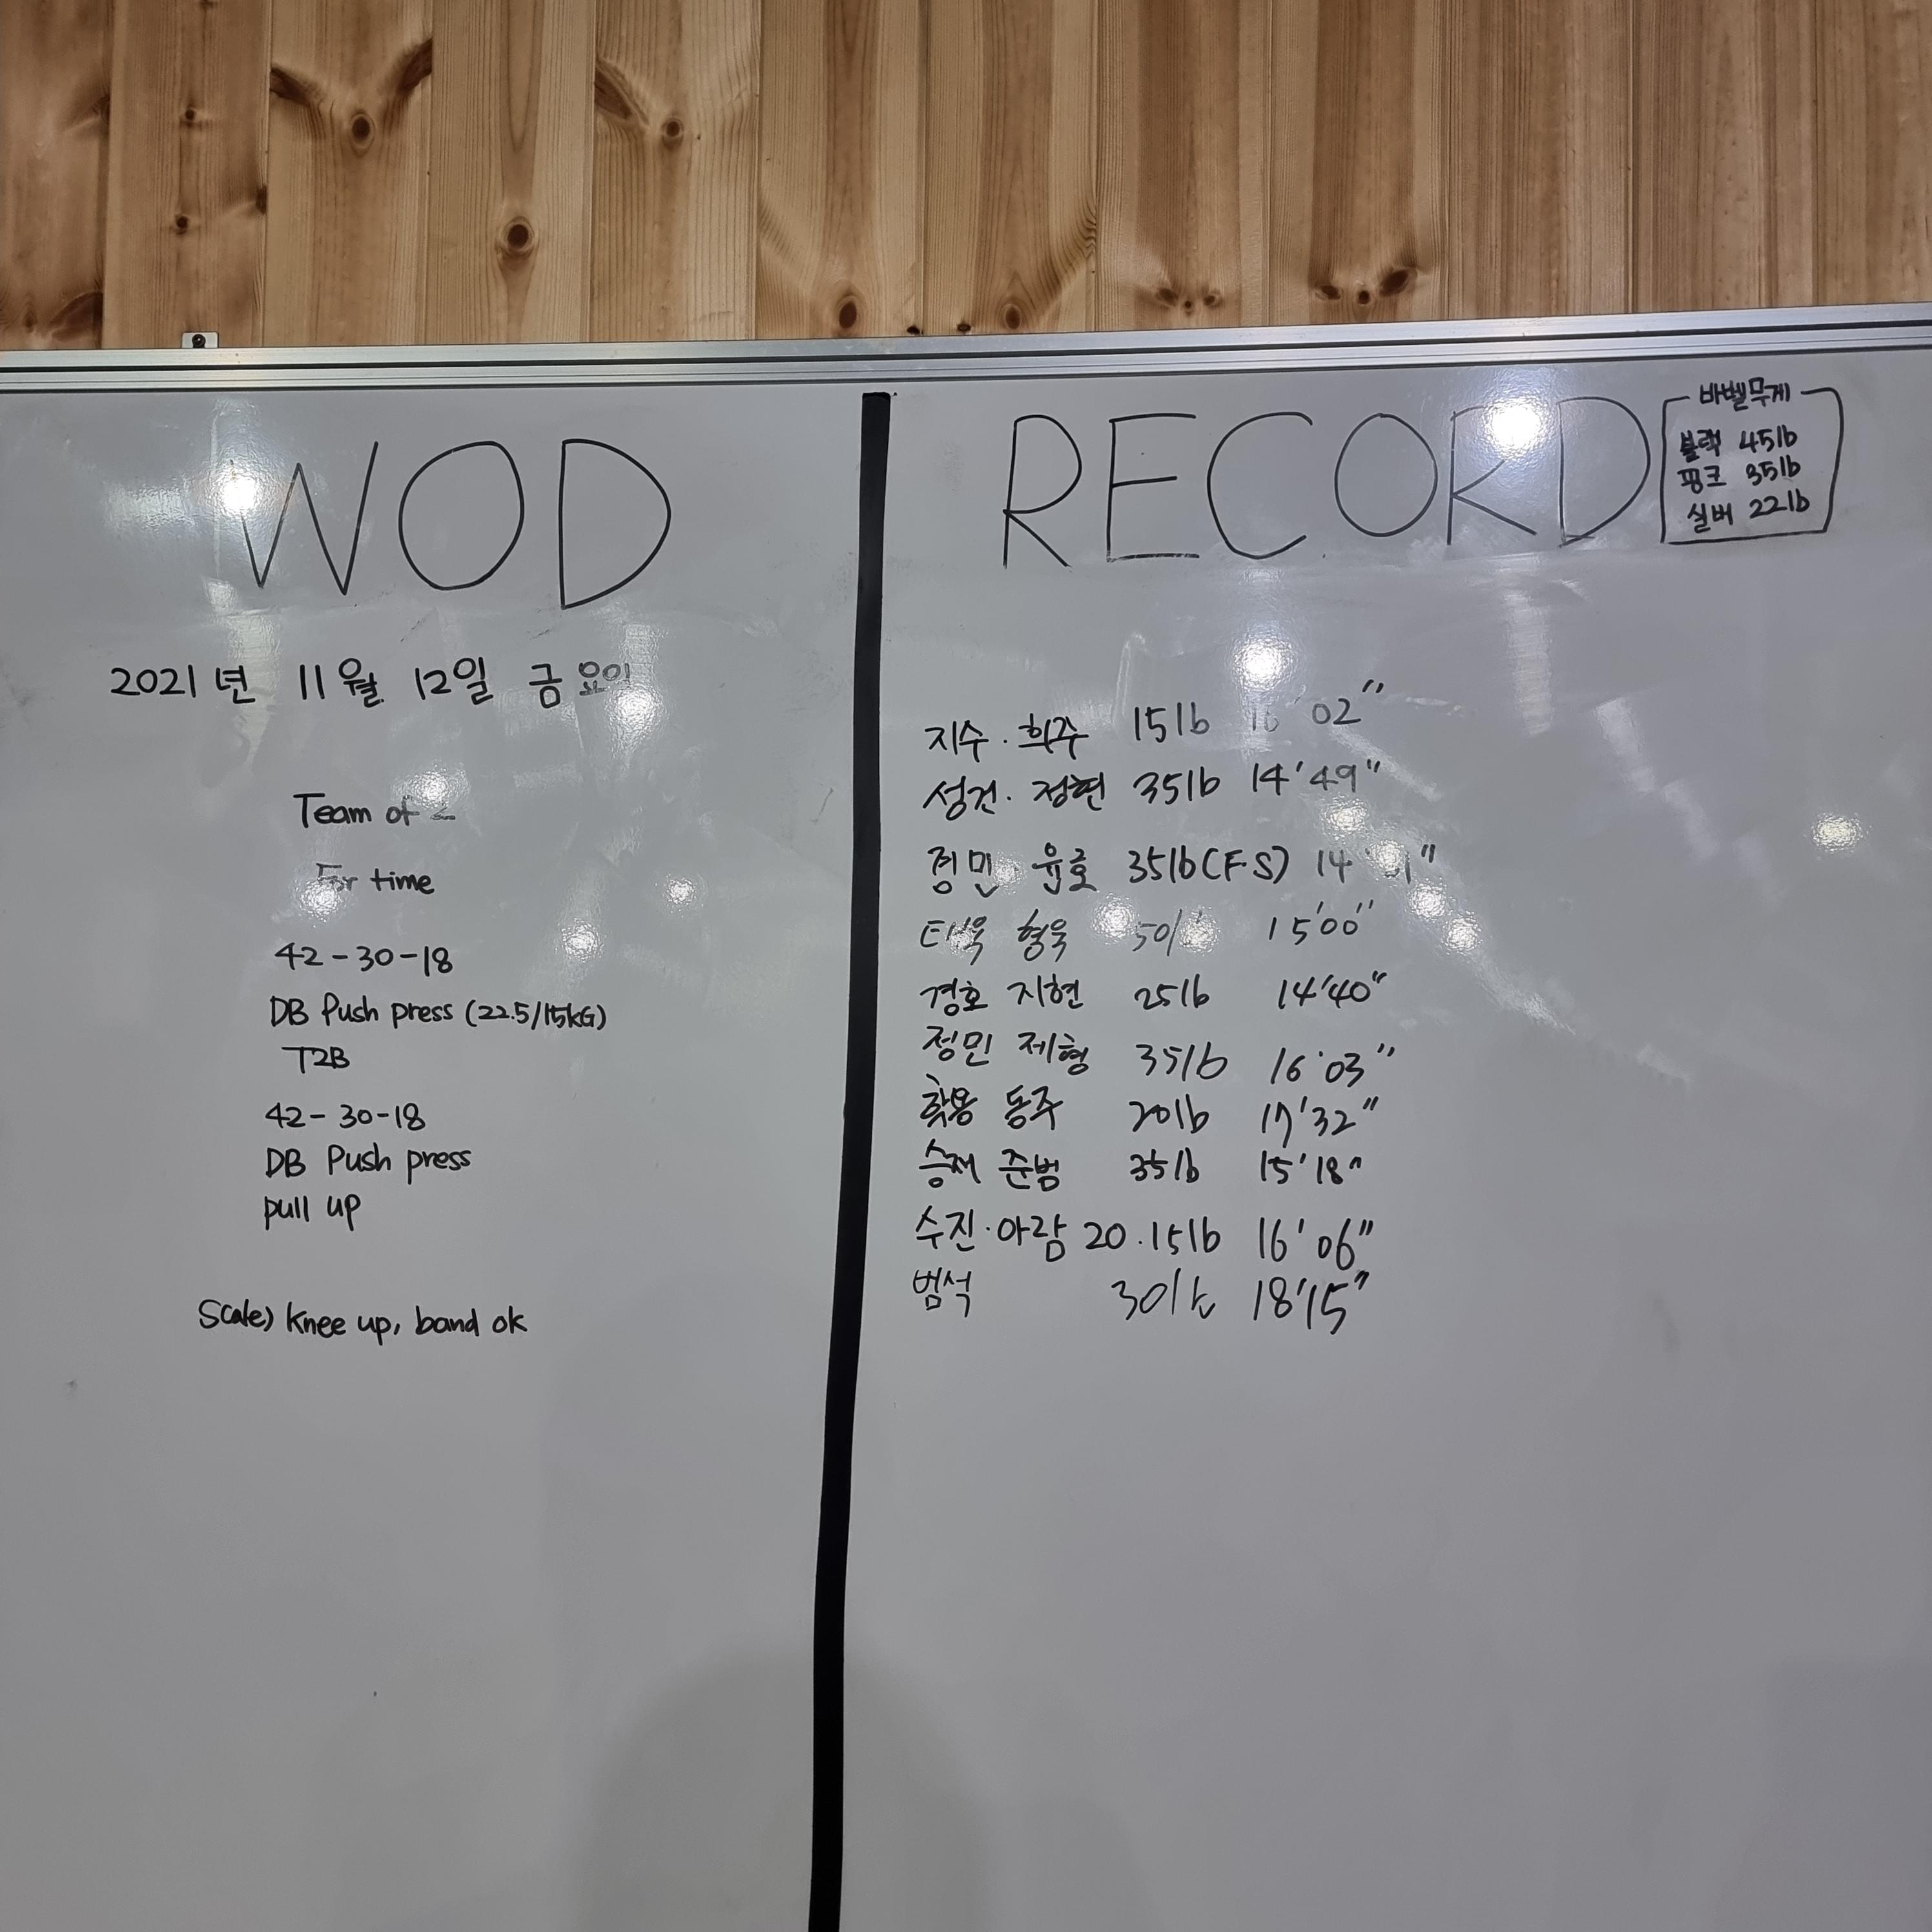 WOD
2021년 11월 12일 금요일
Team of
For time
42-30-18
DB Push press (22.5/15kG)
T2B
42-30-18
DB Push press
pull up
Scale) knee up, band ok
RECORD
바벨무게
블랙 45lb
핑크 35lb
실버 22lb
지수·희주 15lb 16'02"
성건·정현 35lb 14'49"
정민·윤호 35lb(F.S)
형욱 15'00"
경호 지현 25lb 14'40"
정민 제형 35lb 16'03"
학용 동주 20lb 17'32"
승재 준범 35lb 15'18"
수진·아람 20.15lb 16'06"
범석 30lb 18'15"